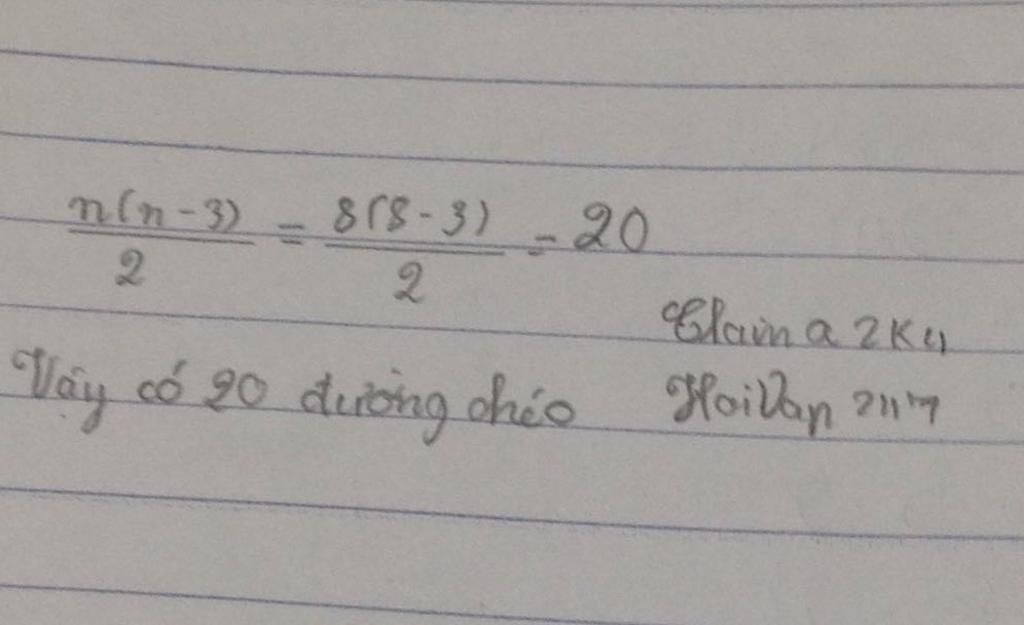 n(n-3)/2 = 8(8-3)/2 = 20
Elaina 2K4
Vậy có 20 đường chéo HaiVan